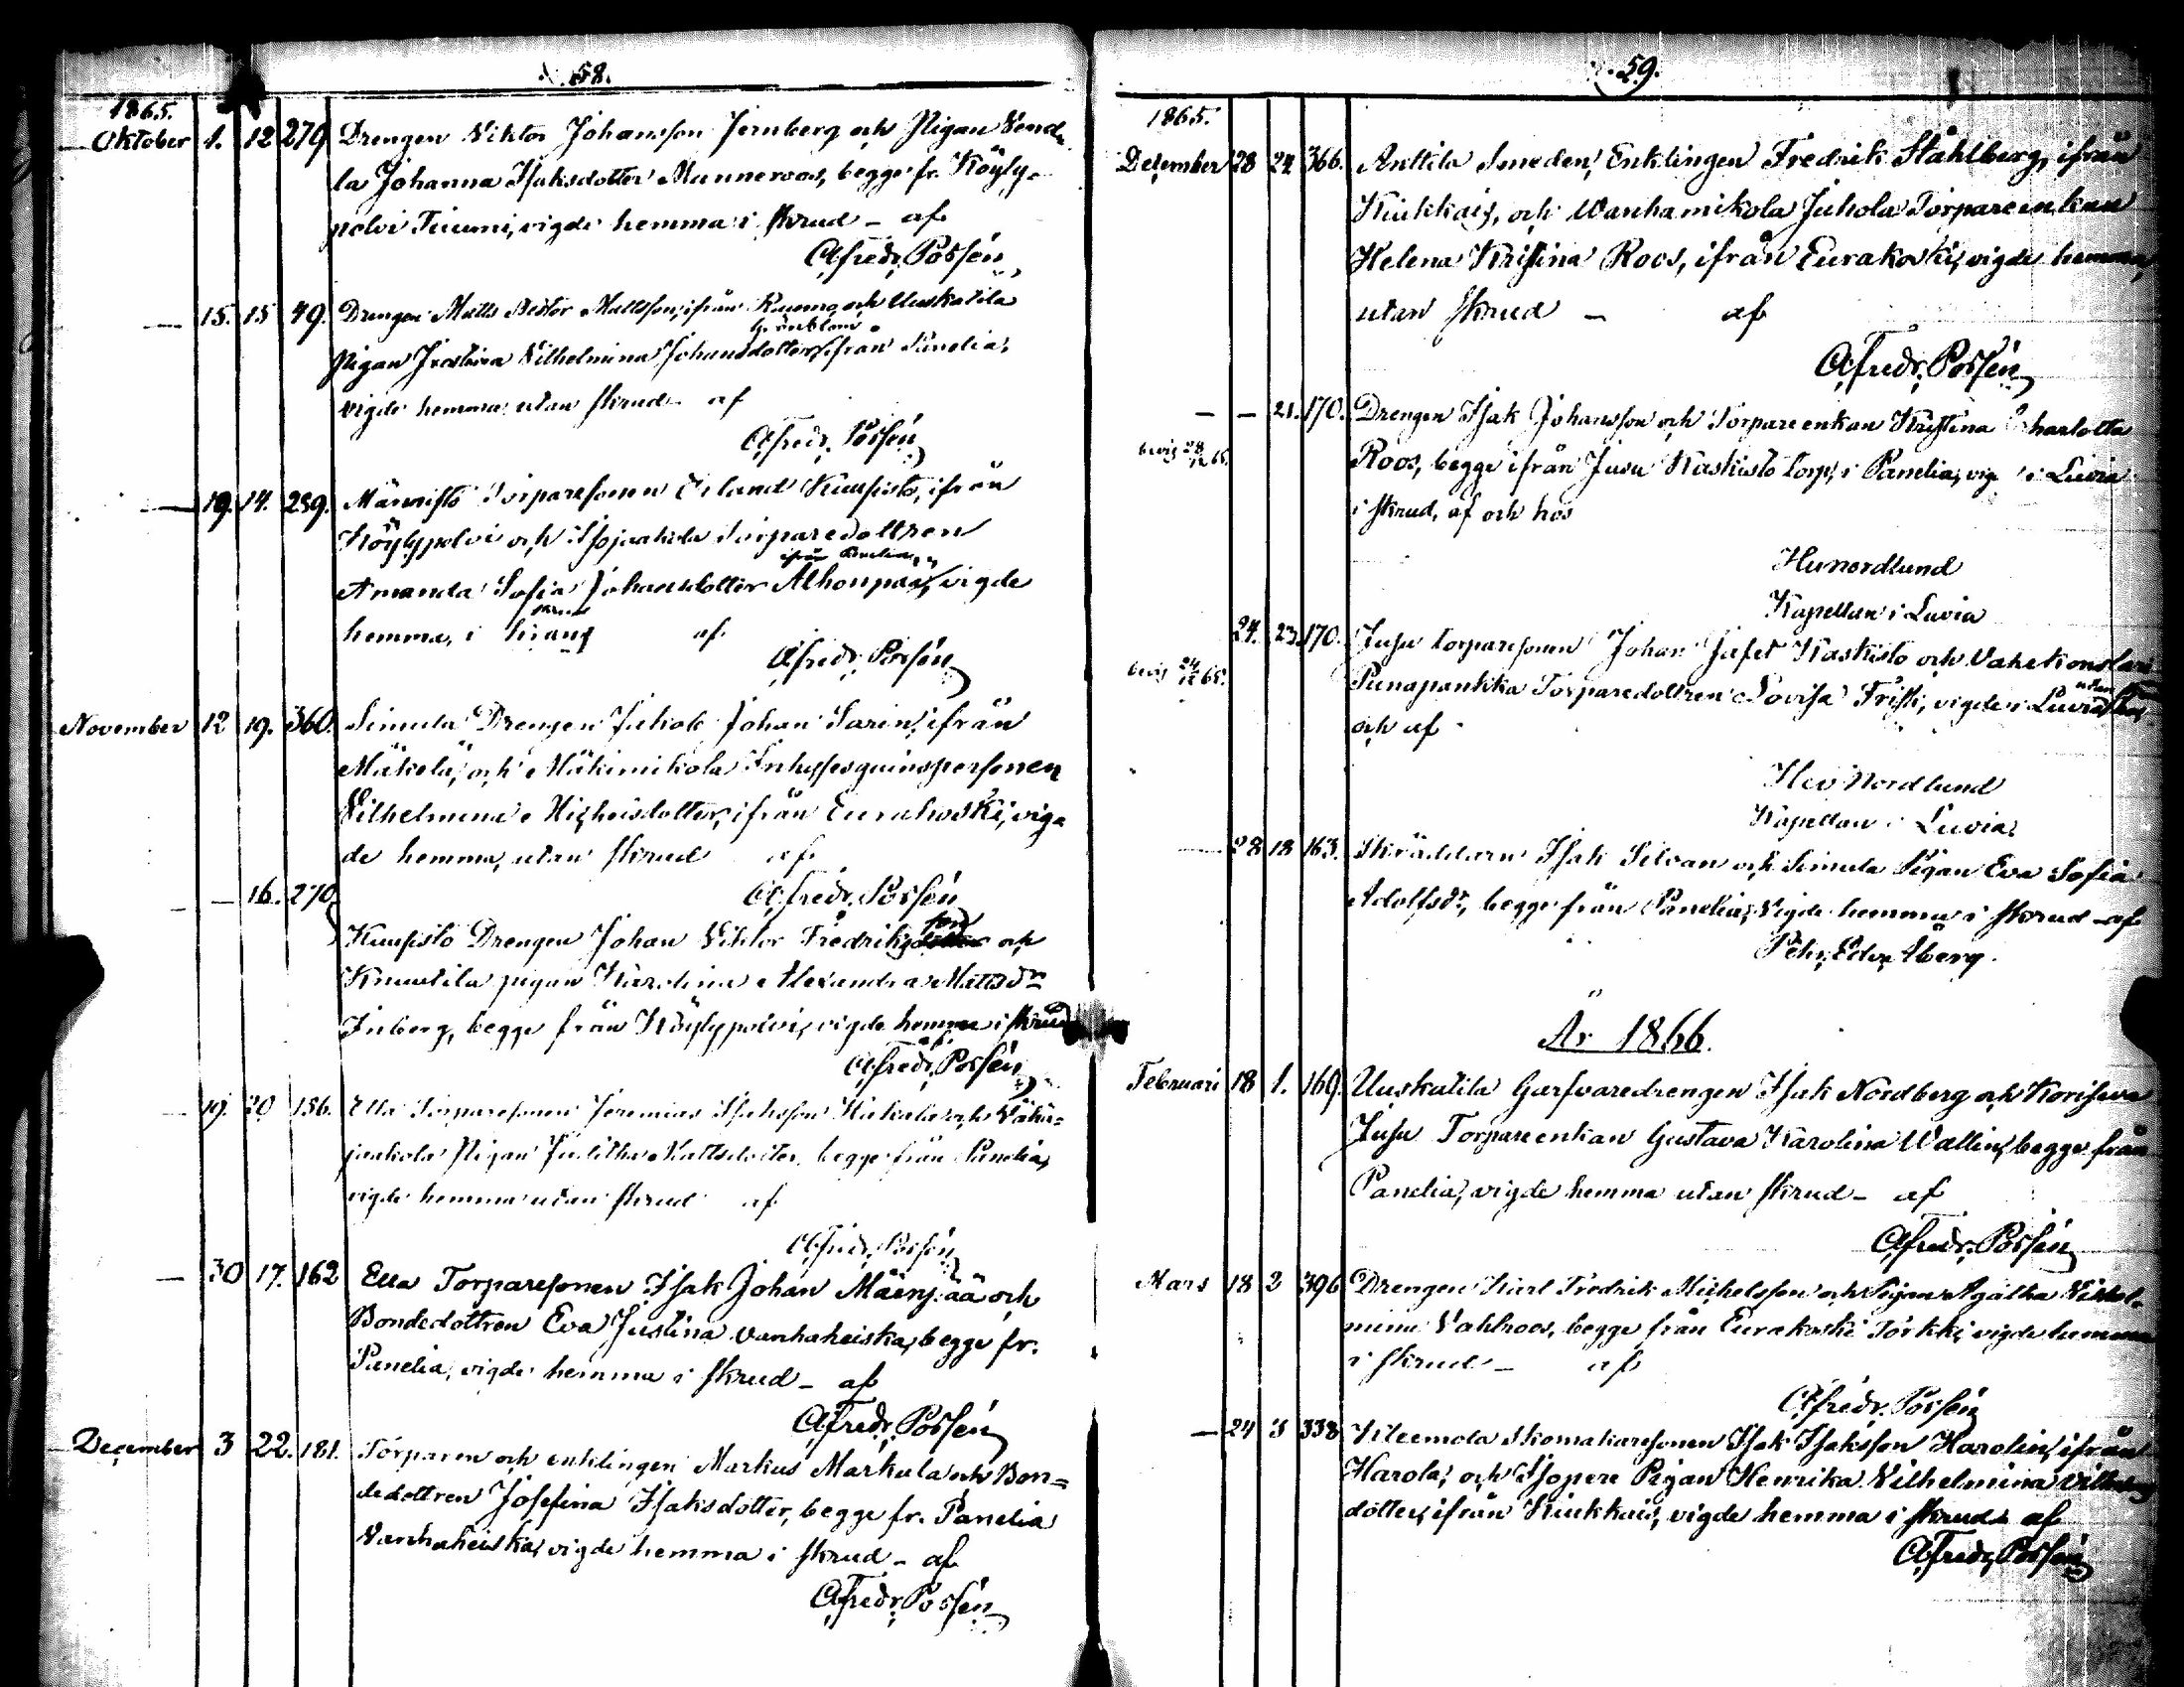 58.
1865.
Oktober 1. 12 279 Drengen Viktor Johansson Jernberg och Pigan Vend
la Johanna Isaksdotter Munneroos, begge fr. Köyly-
polvi Tuumi, vigde hemma i skrud – af
Alfredr. Possén
— 15. 15 49. Drengen Matts Nestor Mattsson, ifrån Rauma, och Uuskatila
Grönblom
Pigan Justina Vilhelmina Johansdotter, ifrån Panelia,
vigde hemma utan skrud – af
Alfredr. Possén
— 19. 14. 259. Torparesonen Erland Kuusisto, ifrån
Köylypolvi och Isojaakola Torparedottren
ifrån Panelia
Amanda Sofia Johansdotter Alhonpää, vigde
skrud
hemma, i af
Alfredr. Possén
November 12 19. 360. Simula Drengen Johan Sarin, ifrån
Mäkelä, och Mäkimikola Inhysesqvinspersonen
Vilhelmina Michelsdotter, ifrån Eurakoski, vig-
de hemma, utan skrud af
Alfredr. Possén
— — 16. 270
son
Kuusisto Drengen Johan Viktor Fredriks och
Knuutila pigan Karolina Alexandra Mattsdr
Inberg, begge från Köylypolvi, vigde hemma i skrud
af
Alfredr. Possén
— 19. 20 156. Ella Torparesonen Jeremias Isaksson och Vähä-
jaakola Pigan Juditha Mattsdotter, begge från Panelia,
vigde hemma utan skrud af
Alfredr. Possén
— 30 17. 162 Ella Torparesonen Isak Johan Mäenpää och
Bondedottren Eva Justina Vanhaheiska, begge fr.
Panelia, vigde hemma i skrud – af
Alfredr. Possén
December 3 22. 181. Torparen och enklingen Markus Markula och Bon=
dedottren Josefina Isaksdotter, begge fr. Panelia
Vanhaheiska, vigde hemma i skrud – af
Alfredr. Possén
59.
1865.
December 28 24 366. Anttila Smeden, Enklingen Fredrik Ståhlberg, ifrån
Kiukkais, och Wanhamikola Juhola Torpareenkan
Helena Kristina Roos, ifrån Eurakoski, vigde hemma,
utan skrud – af
Alfredr. Possén
— — 21. 170. Drengen Isak Johansson och Torpareenkan Kristina Charlotta
bevis 28/12 65.
Roos, begge ifrån Jusu Kaskisto torp, i Panelia, vig i Luvia
i skrud, af och hos
Nordlund
Kapellan i Luvia
24. 23. 170. Jusu torparesonen Johan Jafet Kaskisto och
bevis 24/12 65.
utan
Punapankka Torparedottren Lovisa Fristi, vigde i Luvia
och af
Nordlund
Kapellan i Luvia
— 28 18 163. Skräddaren Isak Silvan och Simula Pigan Eva Sofia
Adolfsdr, begge från Panelia, Vigde hemma i skrud – af
Pehr Edv. Åberg.
År 1866.
Februari 18 1. 169. Uuskatila Garfvaredrengen Isak Nordberg och Koriseva
Jusu Torpareenkan Gustava Karolina Wallin, begge från
Panelia, vigde hemma utan skrud – af
Alfredr. Possén
Mars 18 2 396 Drengen Karl Fredrik Michelsson och Pigan Agatha Vilhel-
mina Vahlroos, begge från Eurakoski Torkki, vigde hemma
i skrud – af
Alfredr. Possén
— 24 3 338 Kleemola Skomakaresonen Isak Isaksson Harolin, ifrån
Harola, och Isopere Pigan Henrika Vilhelmina
dotter, ifrån Kiukkais, vigde hemma i skrud af
Alfredr. Possén